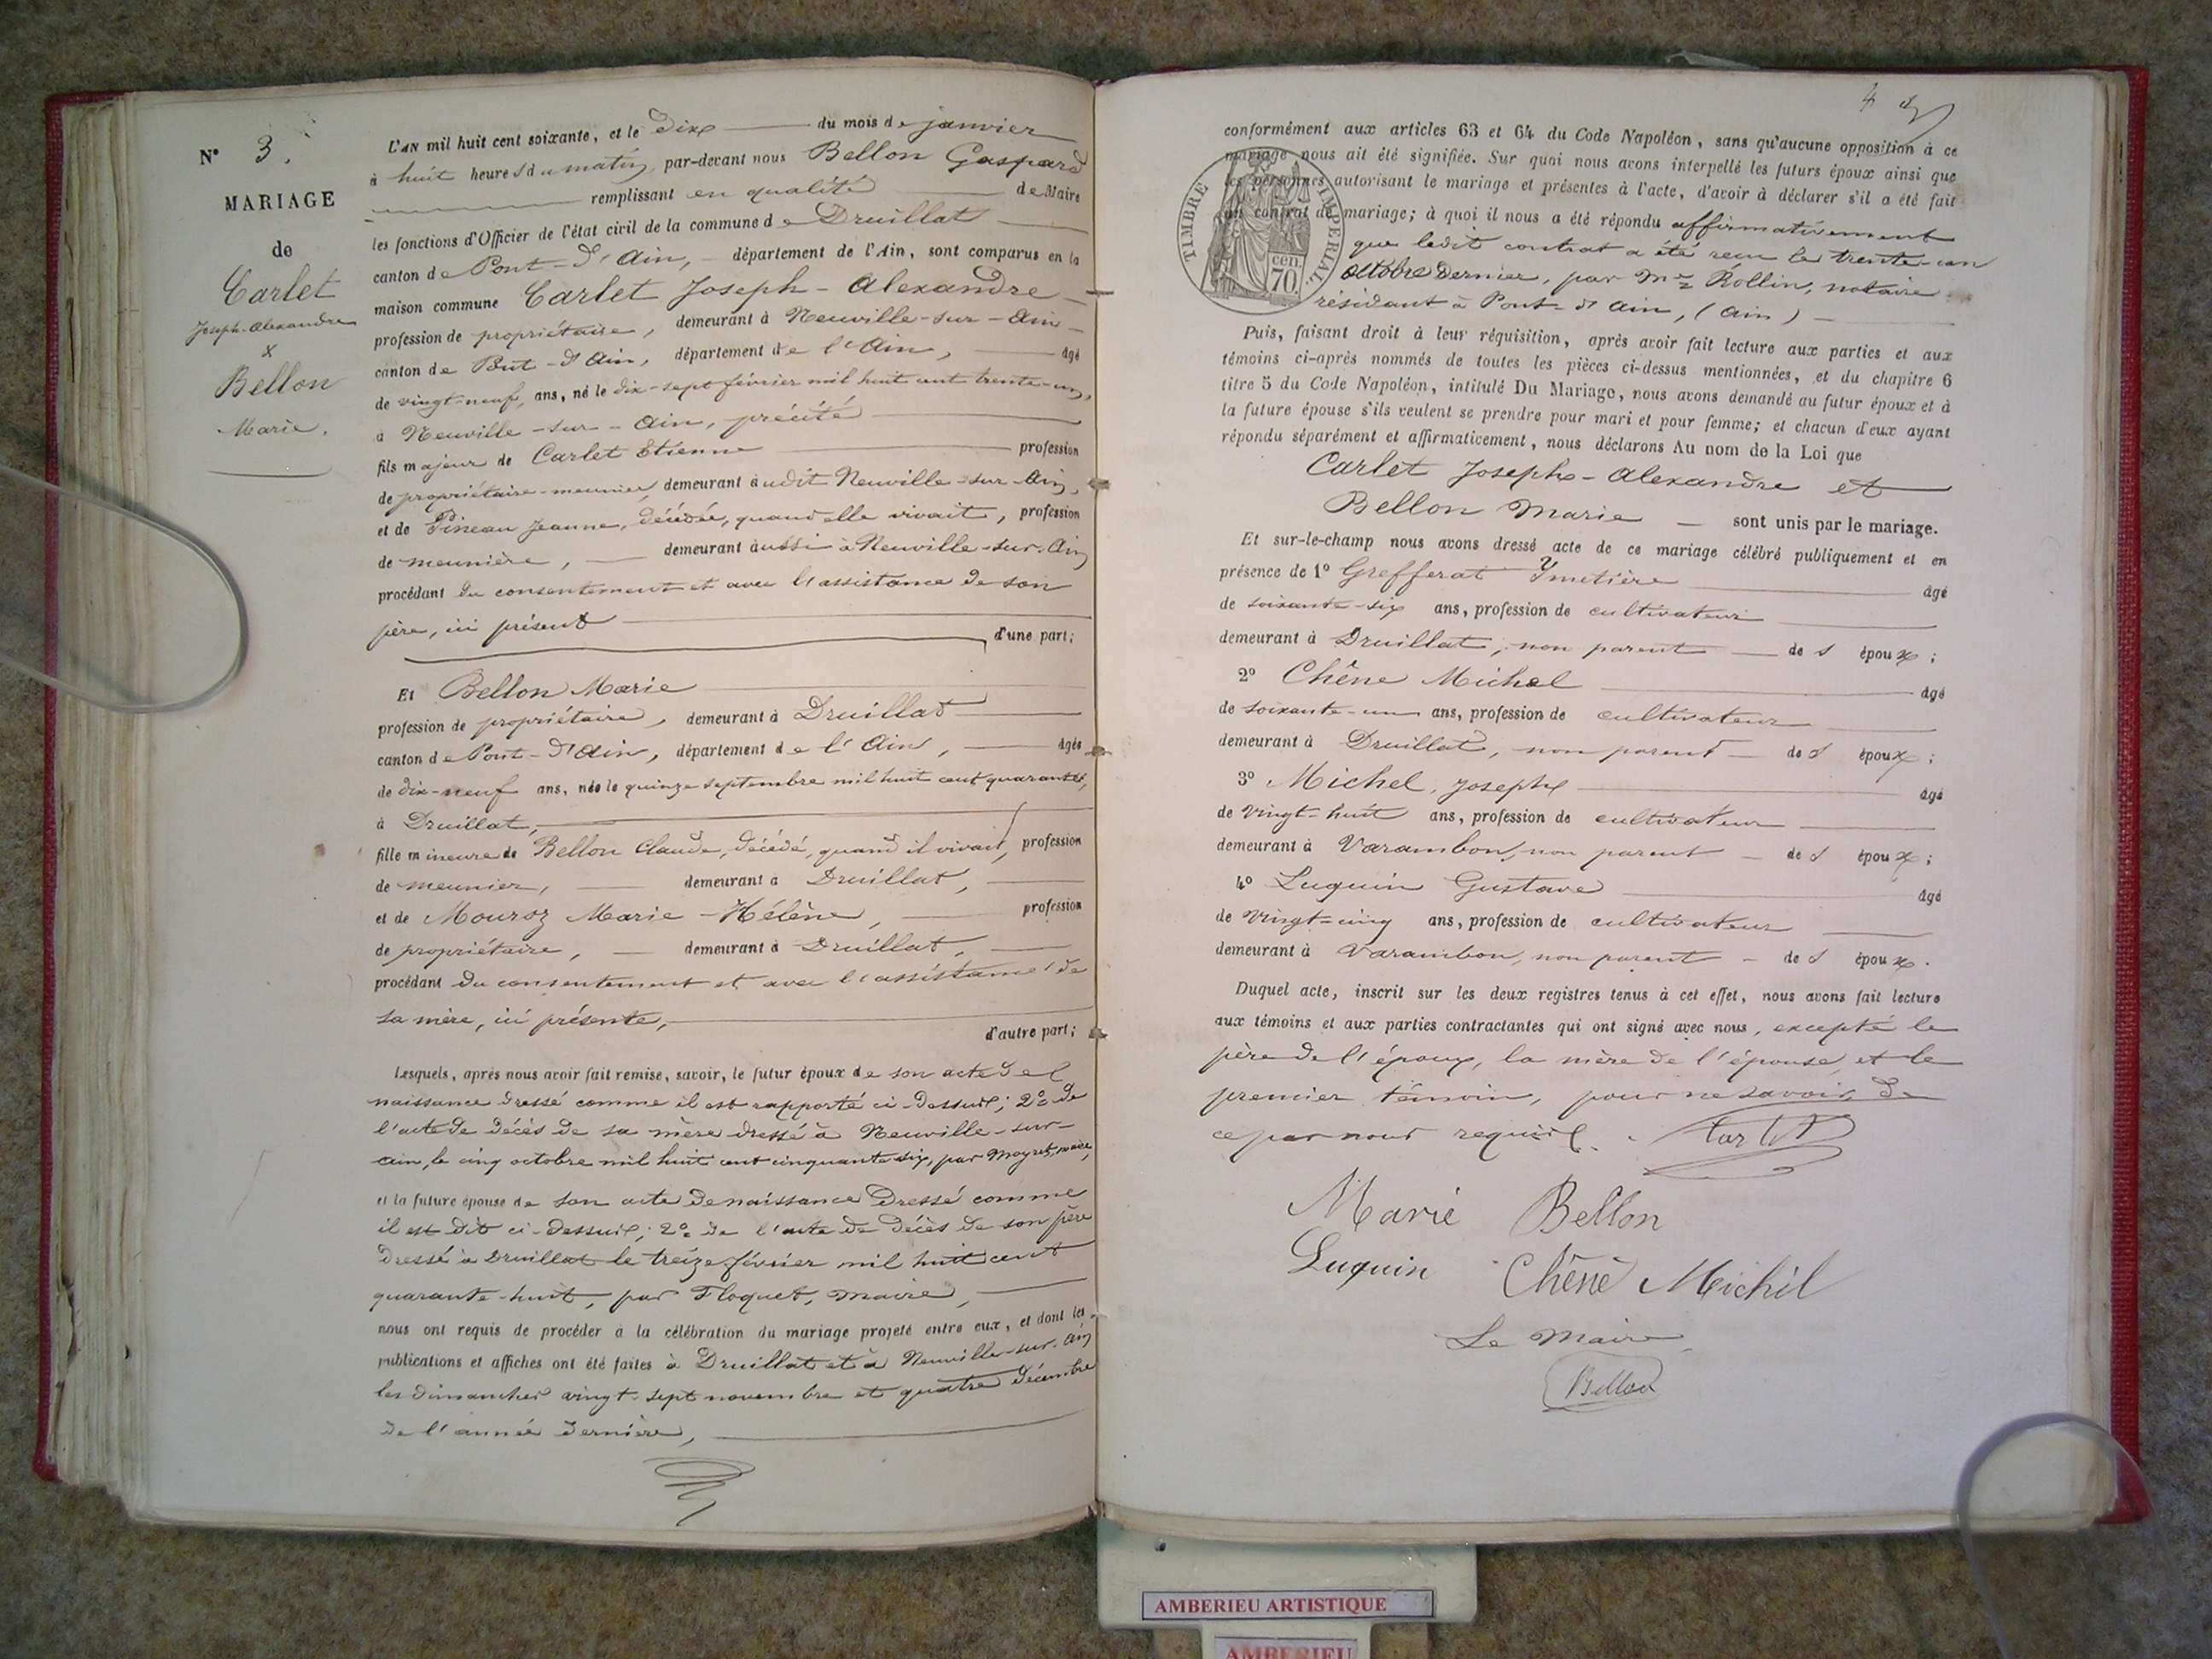 N° 3.
MARIAGE
de
Carlet
Joseph-Alexandre
x
Bellon
Marie.
L'AN mil huit cent soixante, et le dix du mois de janvier
à huit heures du matin, par-devant nous Bellon Gaspard
remplissant en qualité de Maire
les fonctions d'Officier de l'état civil de la commune de Druillat
canton de Pont-d'Ain, département de l'Ain, sont comparus en la
maison commune Carlet Joseph-Alexandre
profession de propriétaire, demeurant à Neuville-sur-Ain
canton de Pont-d'Ain, département de l'Ain, âgé
de vingt-neuf ans, né le dix-sept février mil huit cent trente-un,
à Neuville-sur-Ain, précité
fils majeur de Carlet Etienne profession
de propriétaire-meunier, demeurant audit Neuville-sur-Ain,
et de Pineau Jeanne, décédée, quand elle vivait, profession
de meunière, demeurant aussi à Neuville-sur-Ain
procédant du consentement et avec l'assistance de son
père, ici présent
d'une part;
Et Bellon Marie
profession de propriétaire, demeurant à Druillat
canton de Pont-d'Ain, département de l'Ain, âgée
de dix-neuf ans, née le quinze septembre mil huit cent quarante,
à Druillat,
fille mineure de Bellon Claude, décédé, quand il vivait, profession
de meunier, demeurant à Druillat,
et de Mouroz Marie-Hélène, profession
de propriétaire, demeurant à Druillat,
procédant du consentement et avec l'assistance de
sa mère, ici présente,
d'autre part;
Lesquels, après nous avoir fait remise, savoir, le futur époux de son acte de
naissance dressé comme il est rapporté ci-dessus; 2° de
l'acte de décès de sa mère dressé à Neuville-sur-
Ain, le cinq octobre mil huit cent cinquante-six, par Moyret, maire,
et la future épouse de son acte de naissance dressé comme
il est dit ci-dessus; 2° de l'acte de décès de son père
dressé à Druillat le treize février mil huit cent
quarante-huit, par Floquet, maire,
nous ont requis de procéder à la célébration du mariage projeté entre eux, et dont les
publications et affiches ont été faites à Druillat et à Neuville-sur-Ain
les dimanches vingt-sept novembre et quatre décembre
de l'année dernière,
4
conformément aux articles 63 et 64 du Code Napoléon, sans qu'aucune opposition à ce
mariage nous ait été signifiée. Sur quoi nous avons interpellé les futurs époux ainsi que
les personnes autorisant le mariage et présentes à l'acte, d'avoir à déclarer s'il a été fait
un contrat de mariage; à quoi il nous a été répondu affirmativement
que ledit contrat a été reçu le trente-un
octobre dernier, par Me Rollin, notaire
résidant à Pont-d'Ain, (Ain)
TIMBRE IMPÉRIAL
70 cen.
Puis, faisant droit à leur réquisition, après avoir fait lecture aux parties et aux
témoins ci-après nommés de toutes les pièces ci-dessus mentionnées, et du chapitre 6
titre 5 du Code Napoléon, intitulé Du Mariage, nous avons demandé au futur époux et à
la future épouse s'ils veulent se prendre pour mari et pour femme; et chacun d'eux ayant
répondu séparément et affirmativement, nous déclarons Au nom de la Loi que
Carlet Joseph-Alexandre et
Bellon Marie sont unis par le mariage.
Et sur-le-champ nous avons dressé acte de ce mariage célébré publiquement et en
présence de 1° Grefferat Ymetière âgé
de soixante-six ans, profession de cultivateur
demeurant à Druillat, non parent des époux;
2° Chêne Michel âgé
de soixante-un ans, profession de cultivateur
demeurant à Druillat, non parent des époux;
3° Michel Joseph âgé
de vingt-huit ans, profession de cultivateur
demeurant à Varambon, non parent des époux;
4° Luquin Gustave âgé
de vingt-cinq ans, profession de cultivateur
demeurant à Varambon, non parent des époux.
Duquel acte, inscrit sur les deux registres tenus à cet effet, nous avons fait lecture
aux témoins et aux parties contractantes qui ont signé avec nous, excepté le
père de l'époux, la mère de l'épouse, et le
premier témoin, pour ne savoir, de
ce par nous requis. Carlet
Marie Bellon
Luquin Chêne Michel
Le Maire
Bellon
AMBERIEU ARTISTIQUE
AMBERIEU